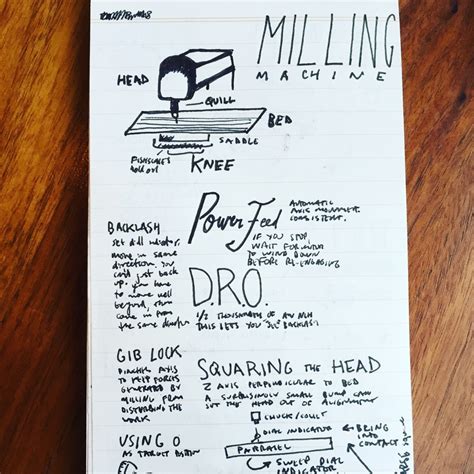 MILLING
MACHINE
HEAD
QUILL
BED
SADDLE
KNEE
Power Feed
AUTOMATIC
AXIS MOVEMENT.
CONSISTENT.
IF YOU STOP,
WAIT FOR
TO WIND DOWN
BEFORE RE-ENGAGING
BACKLASH
set dial indicator.
move in same
direction. You
can't just back
up. You have
to move well
beyond, then
come in from
the same direction
D.R.O.
1/2 THOUSANDTH OF AN INCH
THIS LETS YOU SEE BACKLASH
GIB LOCK
AXIS
TO KEEP FORCES
GENERATED BY
MILLING FROM
DISTURBING THE
WORK
SQUARING THE HEAD
Z AXIS PERPENDICULAR TO BED
A SURPRISINGLY SMALL BUMP CAN
SET THE HEAD OUT OF ALIGNMENT
CHUCK/COLLET
DIAL INDICATOR
BRING
INTO
CONTACT
PARALLEL
SWEEP DIAL
INDICATOR
USING 0
AS TARGET